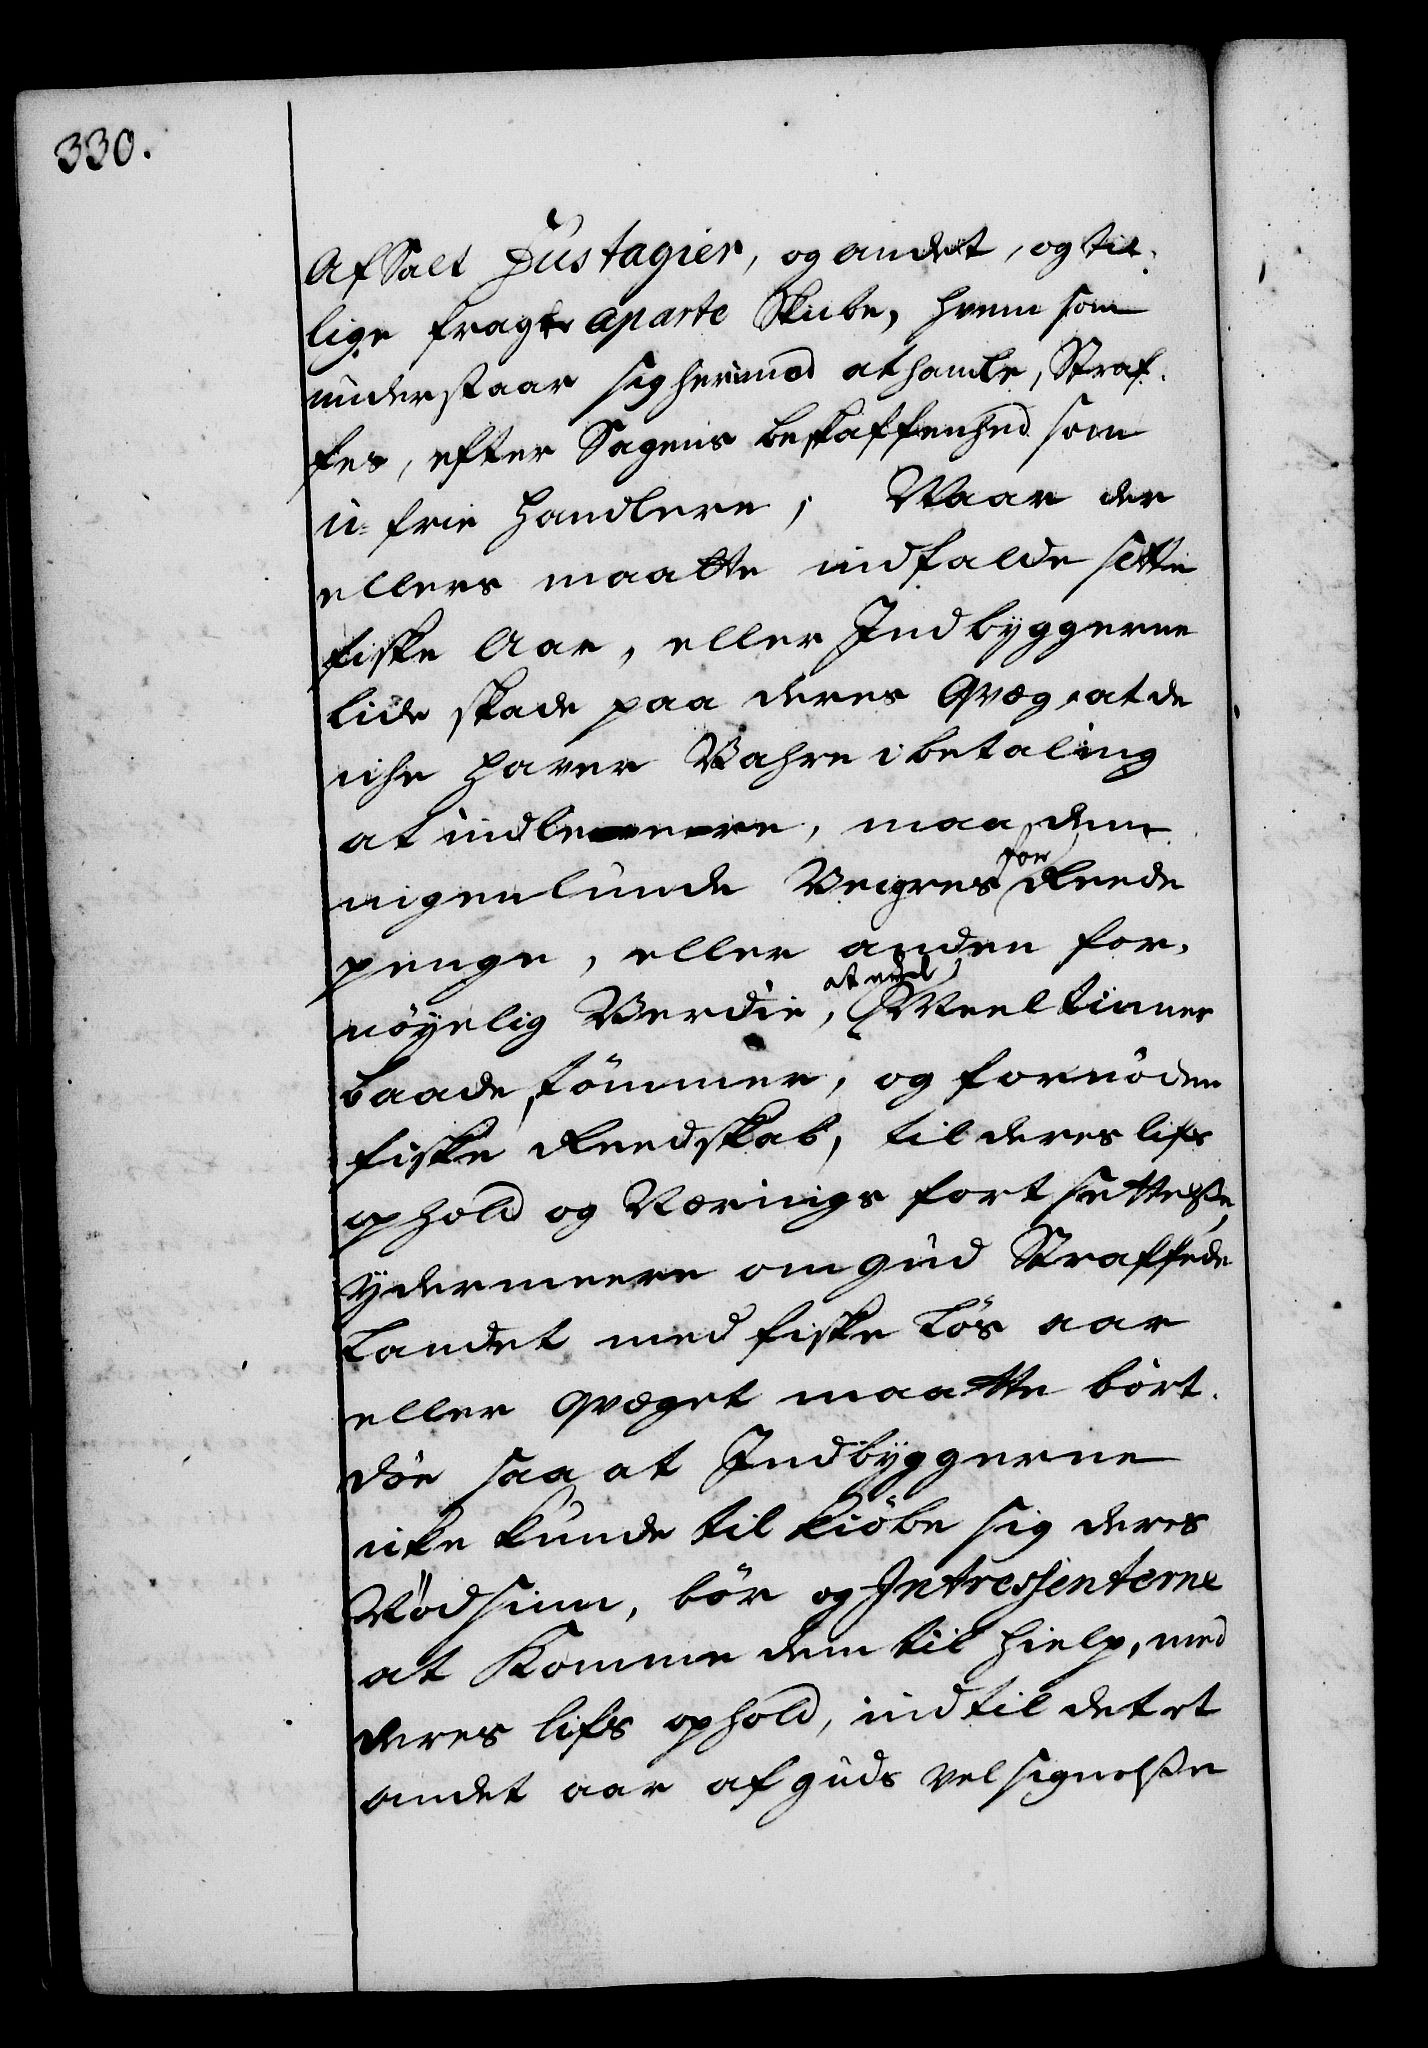 330.
Af Salt Fustagier, og andet, og til-
lige fragte aparte Skibe, hvem som
understaar sig herimod at handle, Straf-
fes, efter Sagens beskaffenhed som
u-frie Handlere; Naar der
ellers maatte indfalde slette
fiske Aar, eller Indbyggerne
lide skade paa deres Qvæg, at de
iche haver Vahre i betaling
at indlevere, maa dem
ingenlunde Veigres for Reede
penge, eller anden for-
nöyelig Verdie, Meel tinner
baade, tömmer, og fornöden
fiske Reedskab, til deres lifs
ophold og Nærings fortsettelße,
ydermeere om gud Straffede
Landet med fiske Lös aar
eller qvæget maatte bort-
döe saa at Indbyggerne
icke kunde til kiöbe sig deres
Nödsinn, bör og Intressenterne
at Komme dem til hielp, med
deres lifs ophold, indtil det et
andet aar af guds velsignelße